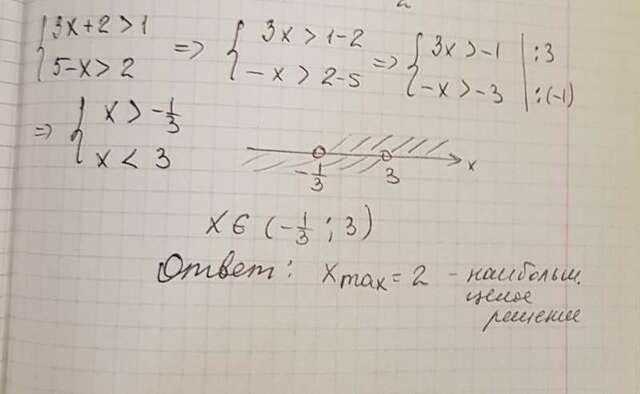 {3x+2>1 => {3x>1-2 => {3x>-1 | :3
5-x>2 -x>2-5 -x>-3 | :(-1)
=> {x>-1/3
x<3
-1/3 3 x
x∈(-1/3; 3)
Ответ: xmax=2 - наибольш.
целое
решение